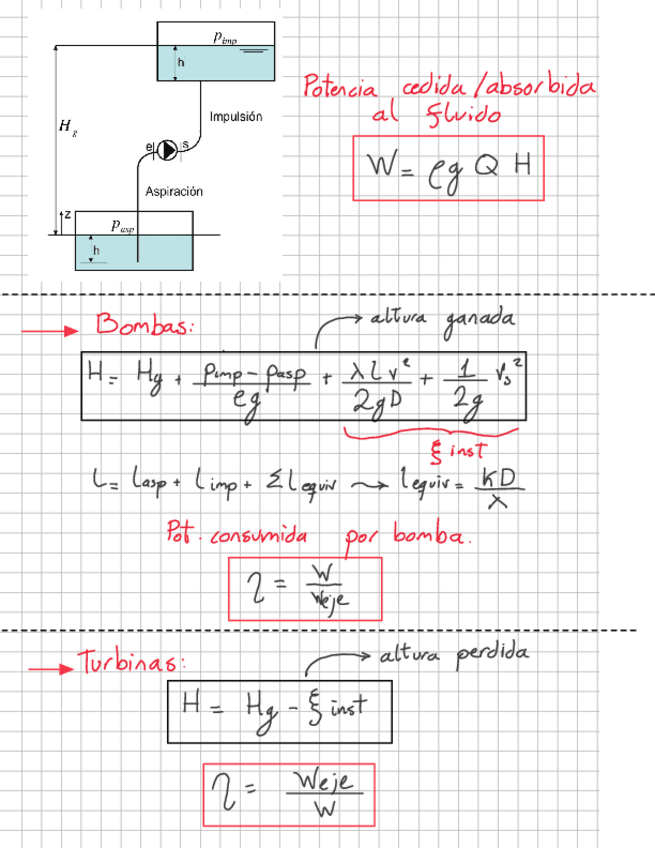 p_imp
h
H_g
Impulsión
e s
Aspiración
z
p_asp
h
Potencia cedida/absorbida
al fluido
W = ρg Q H
Bombas:
altura ganada
H = Hg + (Pimp - Pasp)/ρg + λLv²/2gD + 1/2g vs²
ξ inst
L = Lasp + Limp + ΣLequiv ⇝ lequiv = KD/λ
Pot. consumida por bomba.
η = W/Weje
Turbinas:
altura perdida
H = Hg - ξ inst
η = Weje/W